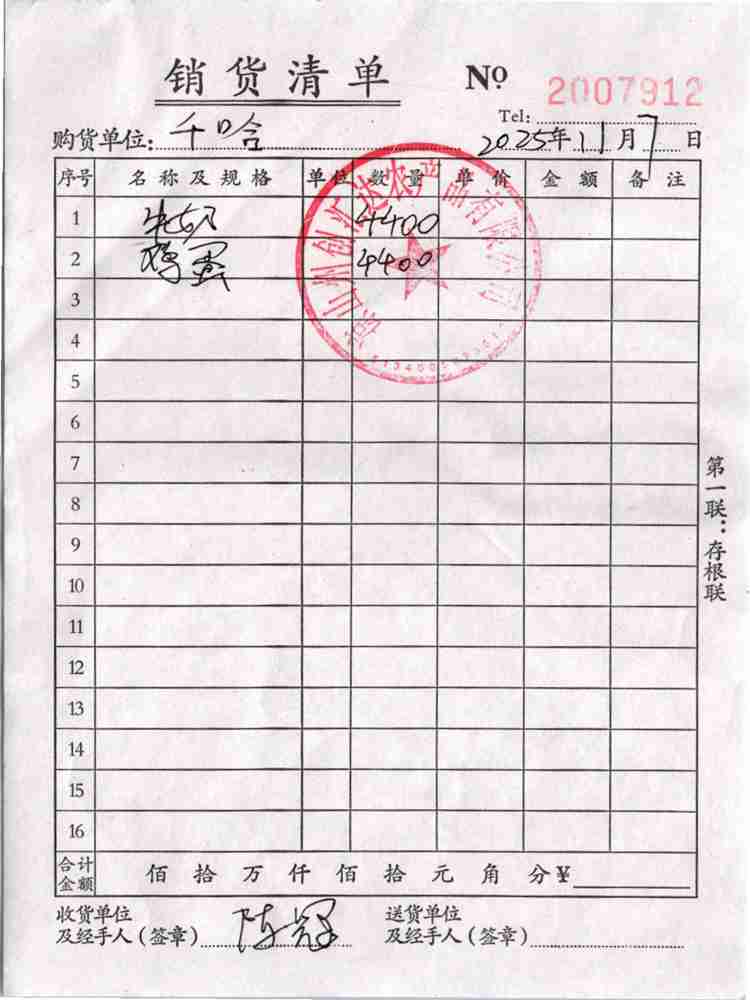 销货清单 № 2007912
Tel:
购货单位: 千哈 2025年11月7日
序号 名称及规格 单位 数量 单价 金额 备注
1 牛奶 4400
2 鸡蛋 4400
3
4
5
6
7
8
9
10
11
12
13
14
15
16
合计金额 佰拾万仟佰拾元角分¥
收货单位及经手人(签章) 陈
送货单位及经手人(签章)
第一联:存根联
凉山州创汇达农产品有限公司